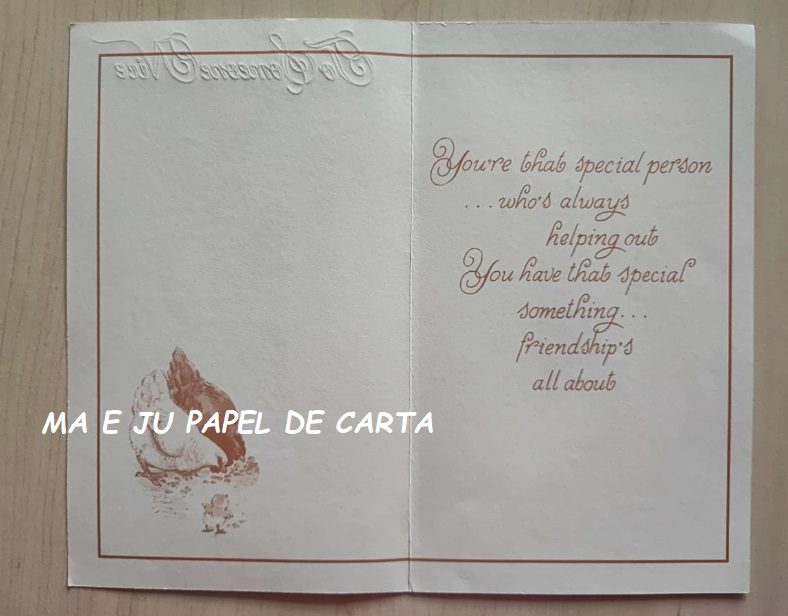 To Someone Nice
You're that special person
...who's always
helping out
You have that special
something...
friendship's
all about
MA E JU PAPEL DE CARTA